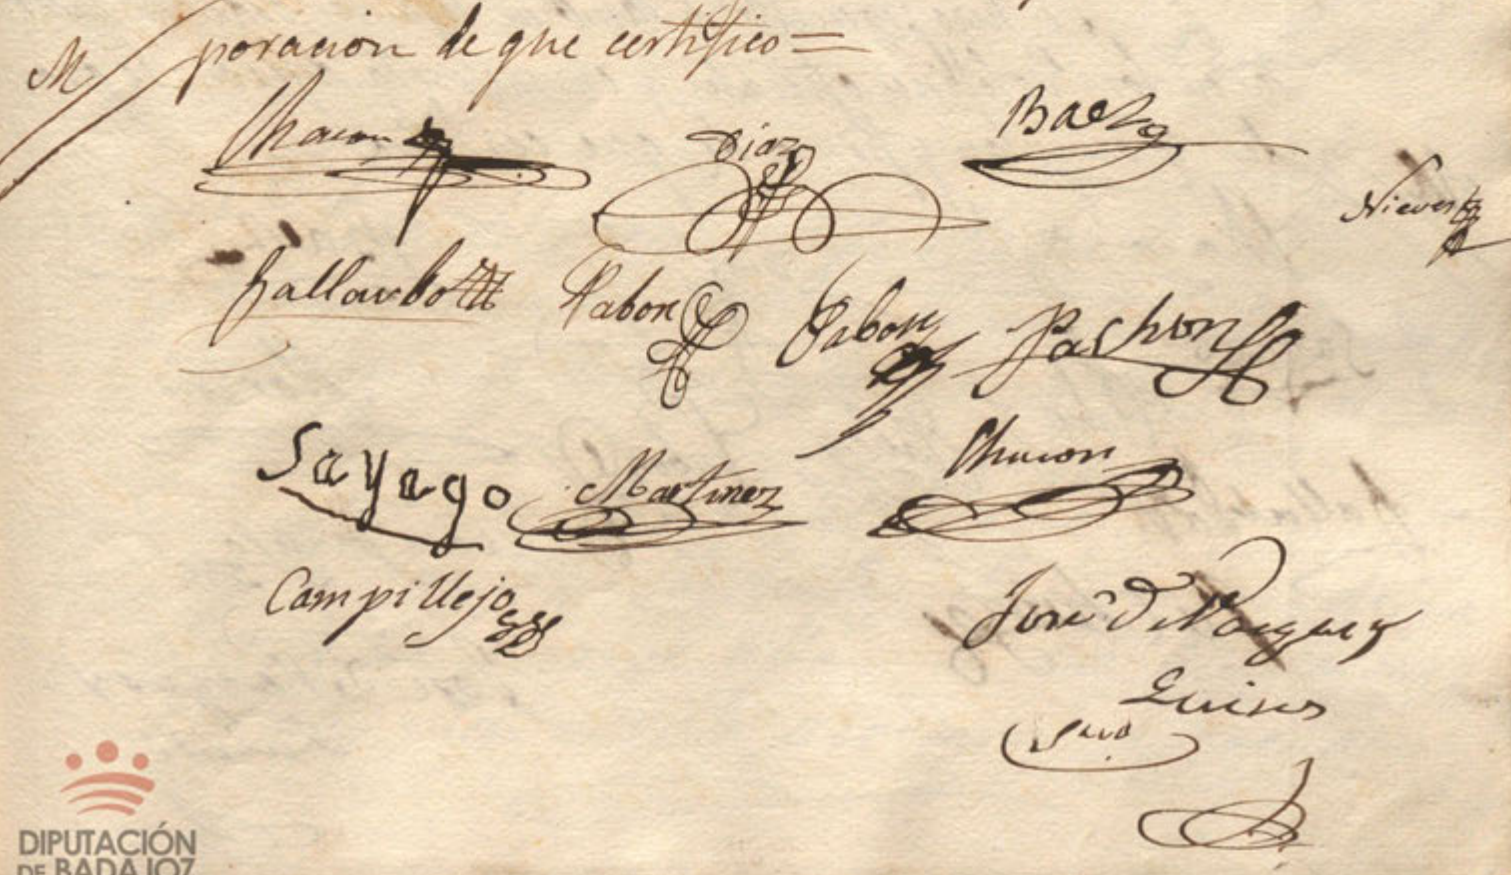 M
poracion de que certifico =
Chacon Diaz Baez
Nieves
Gallardo Pabon Pabon Pachon
Sayago Martinez Chacon
Campillejo
Jose
Srio
DIPUTACIÓN
DE BADAJOZ